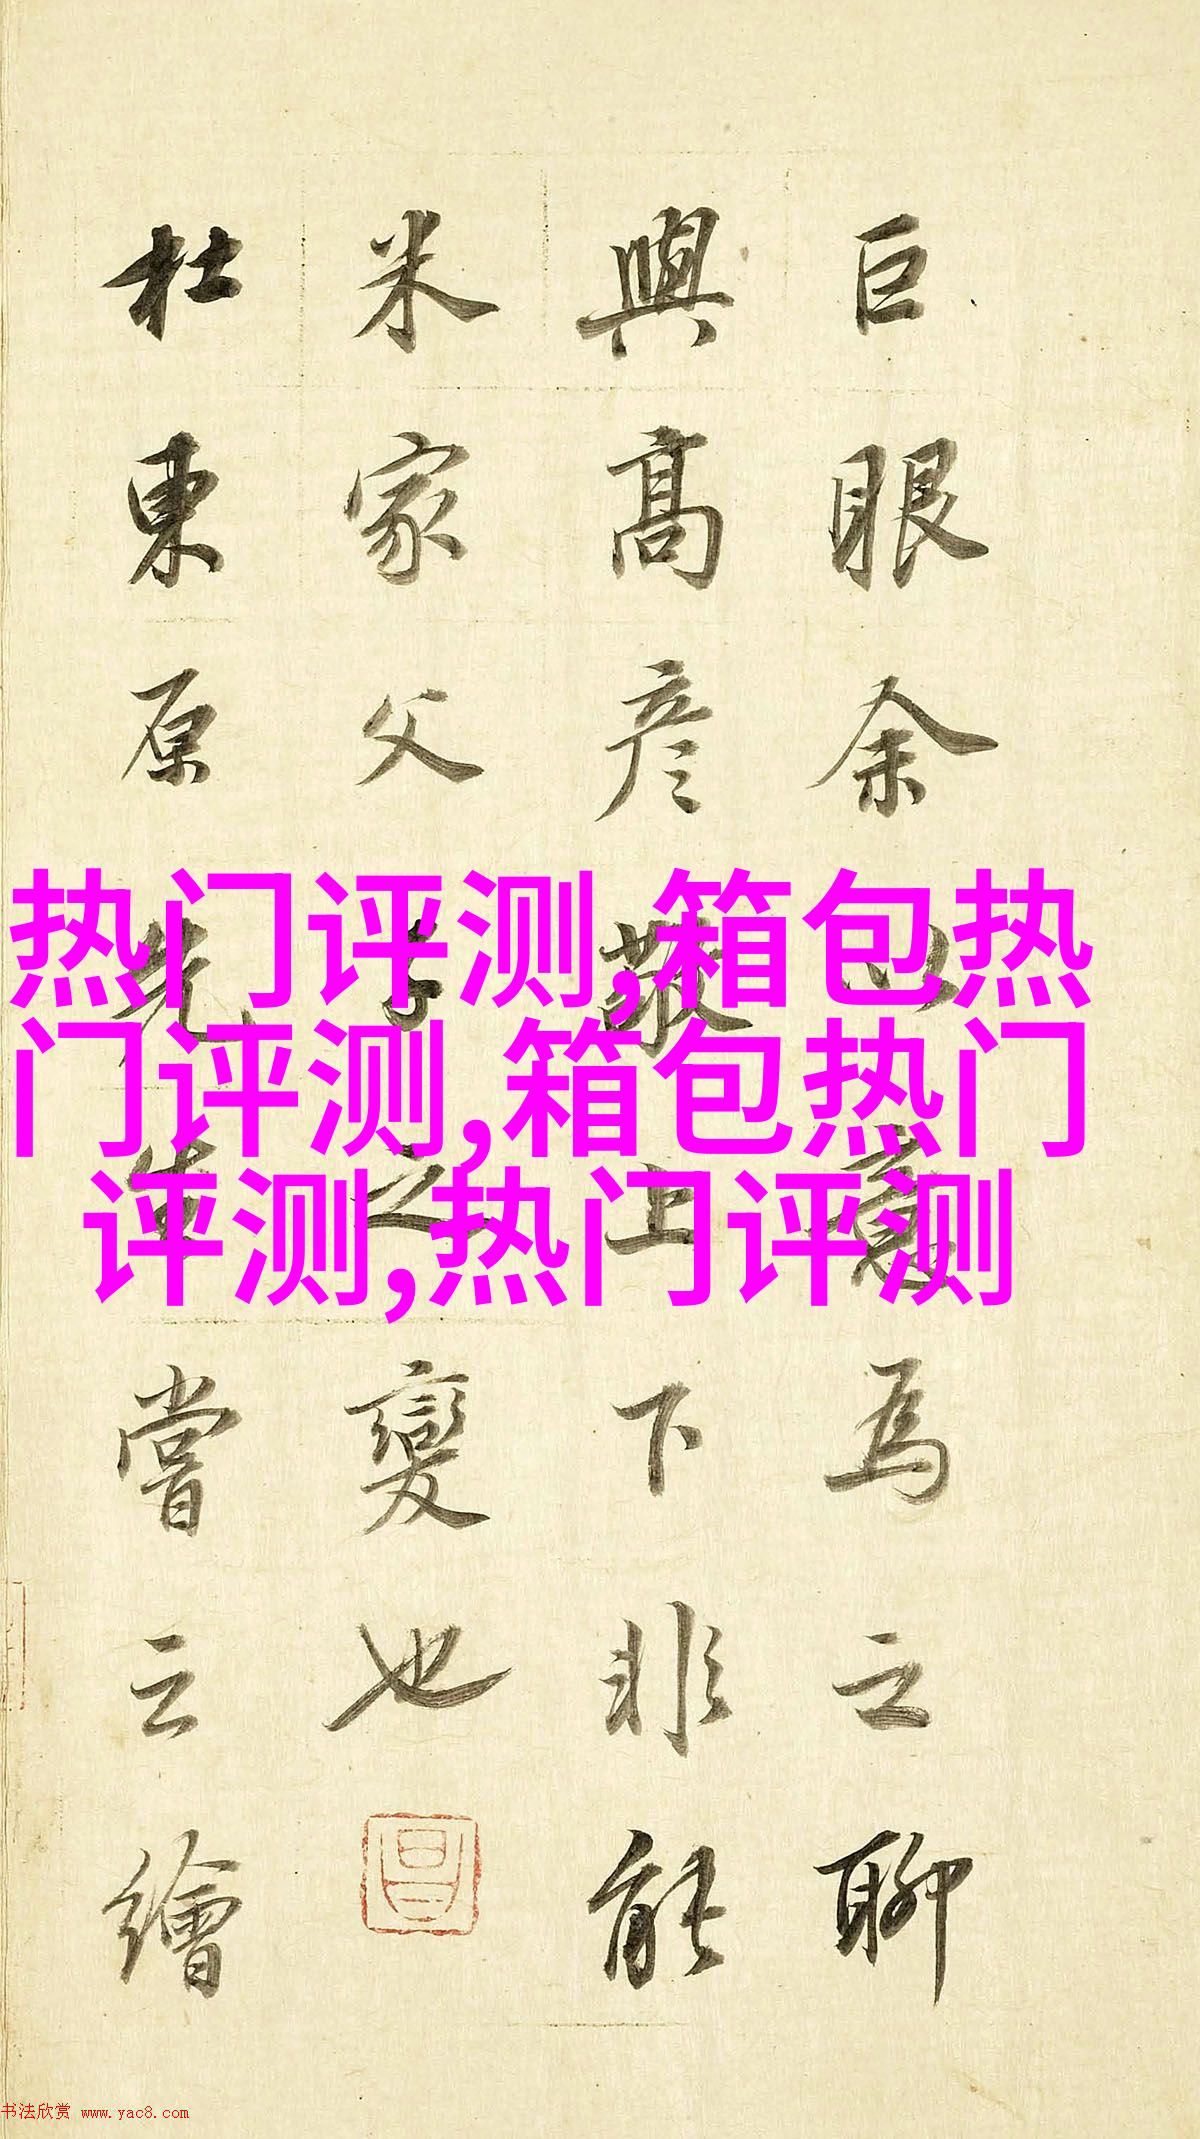 巨眼余以意爲之聊
與高彥敬上下非能
米家父子之變也
杜東原先生嘗云繪
热门评测,箱包热
门评测,箱包热门
评测,热门评测
书法欣赏 www.yac8.com